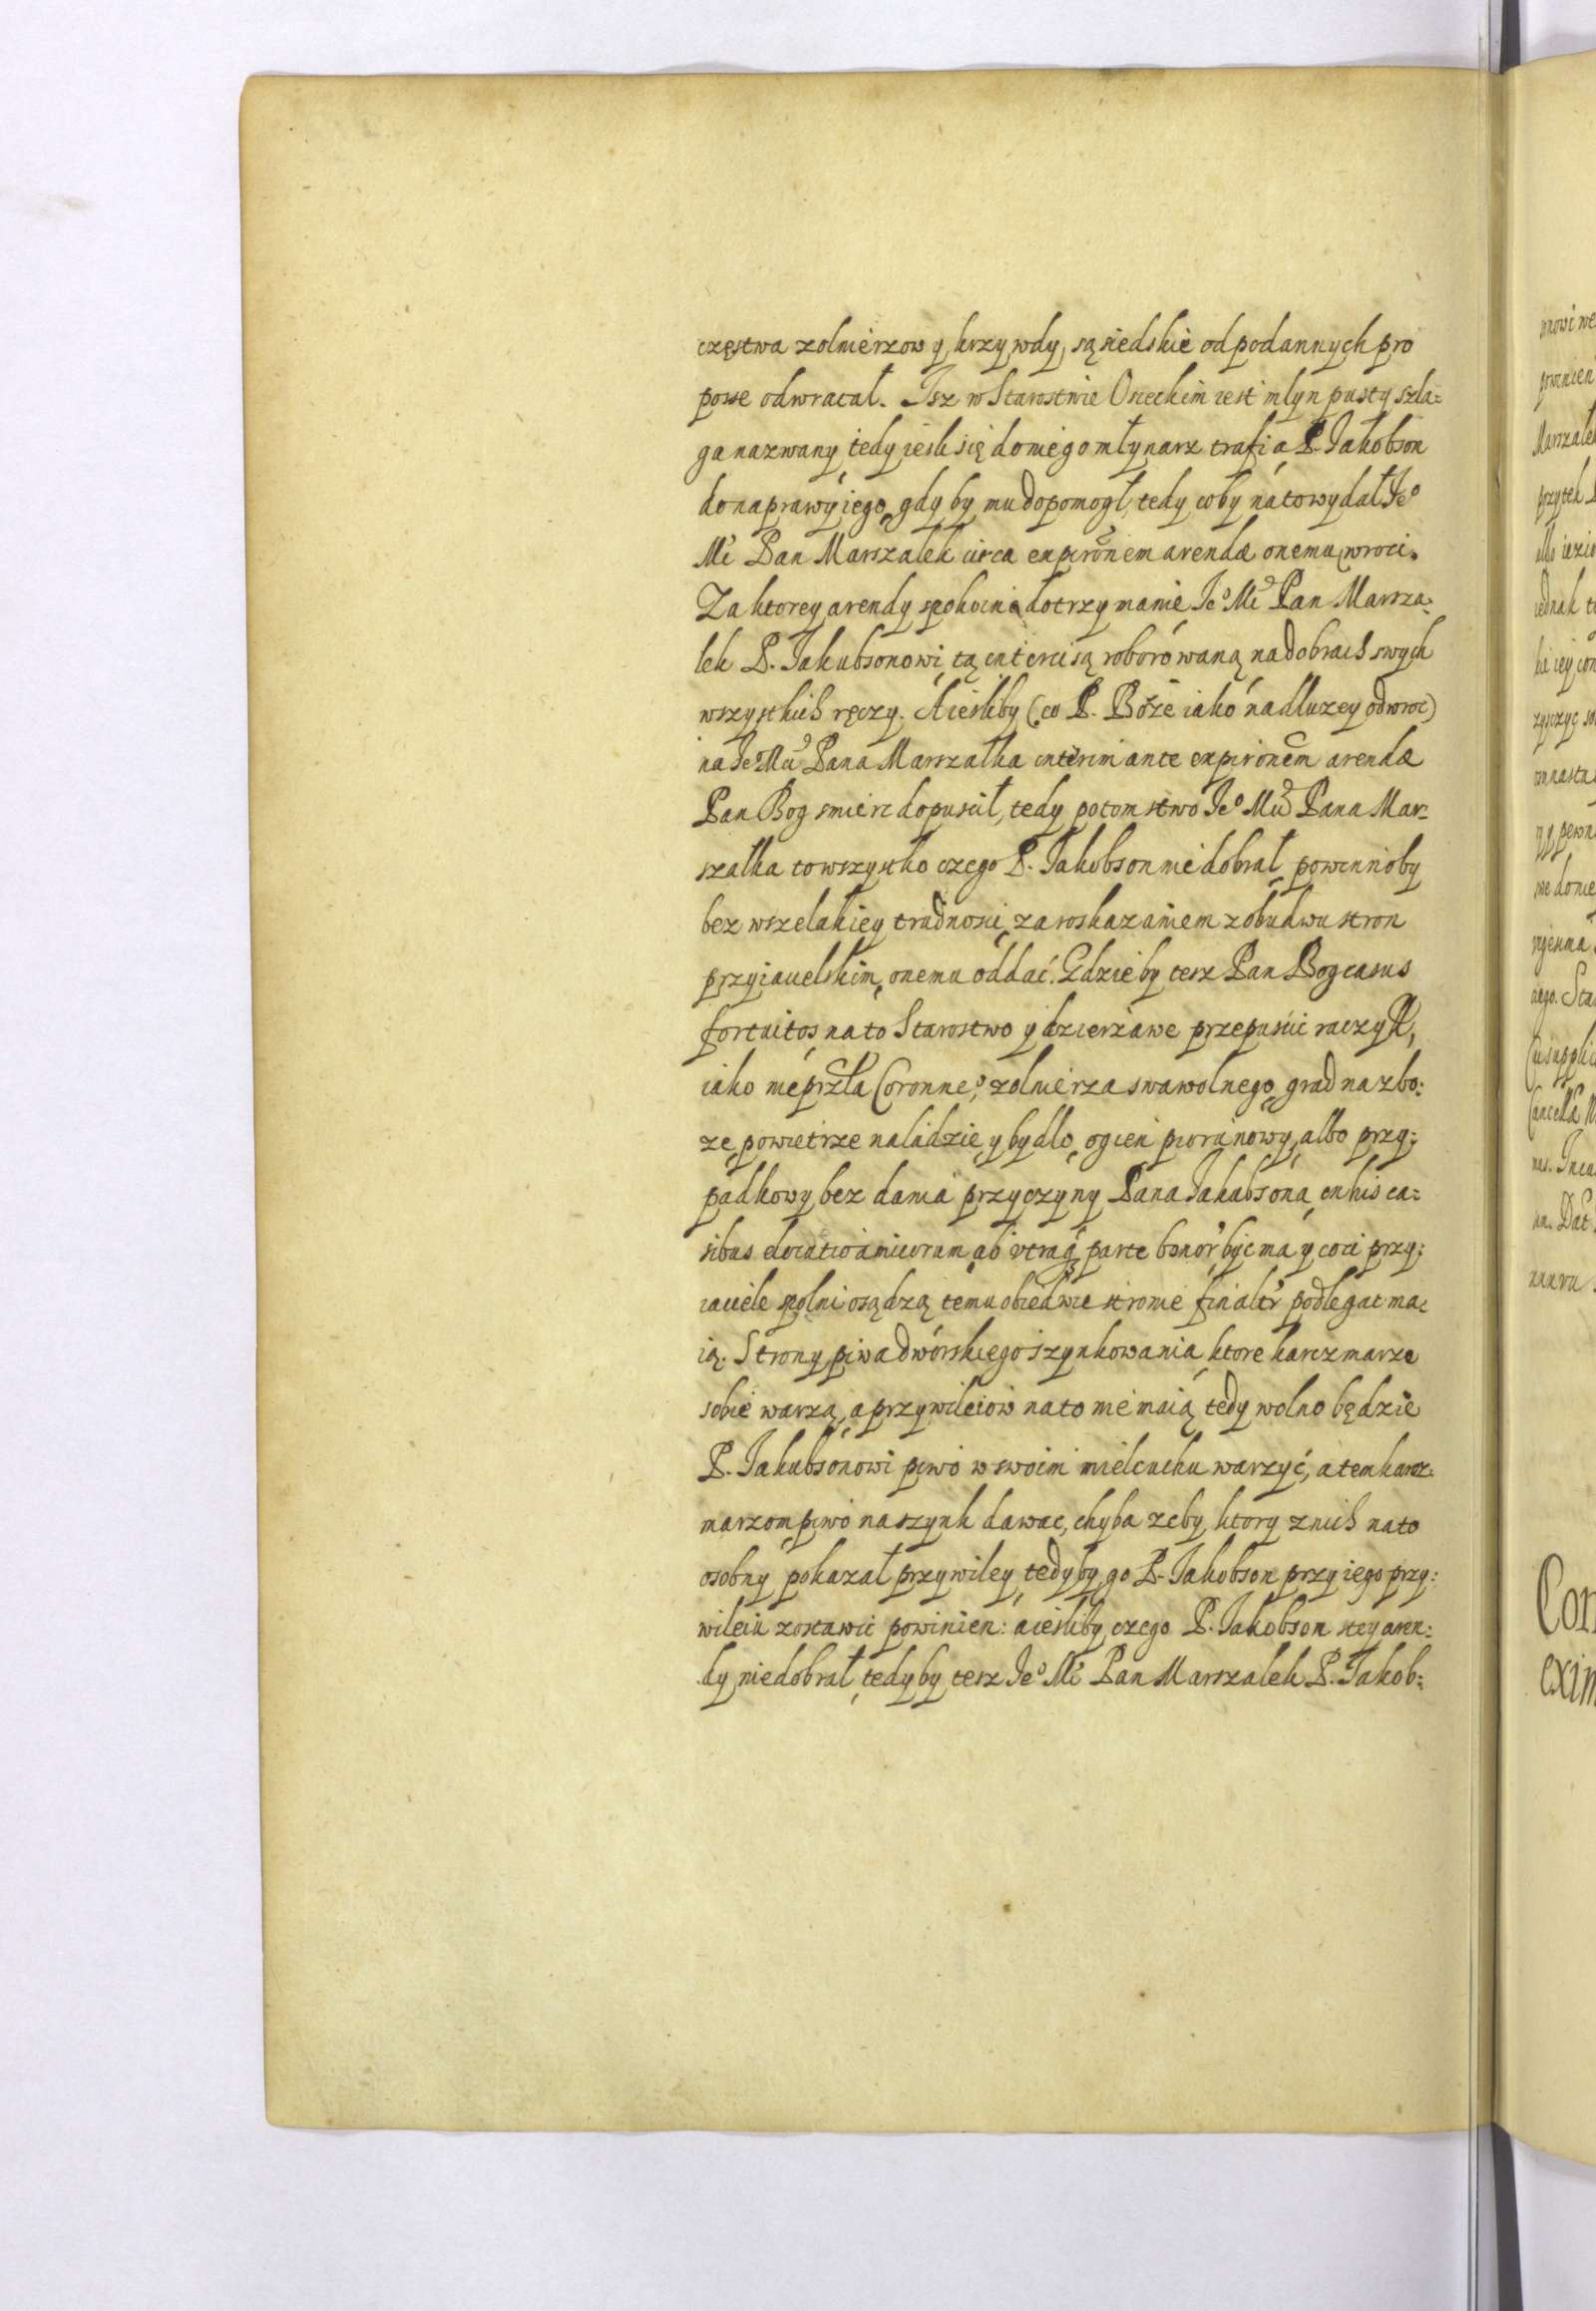 częstwa zolnierzow y krzywdy sąsiedskie od podannych pro
posse odwracał. Isz w Starostwie Oseckim iest mlyn pusty szla:
ga nazwany tedy iesli się do niego młynarz trafi a P. Jakobson
do naprawy iego gdy by mu dopomogł, tedy co by na to wydał Je⁰
Mć Pan Marszalek circa expironem arendæ onemu wroci.
Za ktorey arendy spokoine dotrzymanie Je⁰ Mć Pan Marsza:
lek P. Jakubsonowi tą intercisą roborowaną na dobrach swych
wszystkich ręczy. A iesliby (co P. Boże iako nadluzey odwroc)
na Je⁰ Mci Pana Marszałka interim ante expironem arendæ
Pan Bog smierc dopuscił, tedy potomstwo Je⁰ Mci Pana Mar:
szałka to wszystko czego P. Jakobson nie dobrał powinnioby
bez wszelakiey trudnosci za roskazaniem z obudwu stron
przyiacielskim onemu oddać. Gdzieby tesz Pan Bog casus
fortuitos na to Starostwo y dzierżawe przepuscic raczył,
iako nieprzła Coronne⁰, zolnierza swawolnego grad na zbo:
ze, powietrze na ludzie y bydlo, ogien piorunowy, albo przy:
padkowy bez dania przyczyny Pana Jakubsona in his ca:
sibus elocutio amicorum ab utraq parte bonor byc ma y co ci przy:
iaciele spolni osądzą temu obiedwie stronie finaltr podlegac ma:
ią. Strony piwa dworskiego szynkowania ktore karczmarze
sobie warzą, a przywileiow na to nie maią tedy wolno będzie
P. Jakubsonowi piwo w swoim mielcuchu warzyć, a tem karcz:
marzom piwo na szynk dawac, chyba zeby ktory z nich na to
osobny pokazał przywiley tedyby go P. Jakobson przy iego przy:
wileiu zostawic powinien: a iesliby czego P. Jakobson stey aren:
dy niedobrał, tedyby tesz Je⁰ Mć Pan Marszalek P. Jakob: